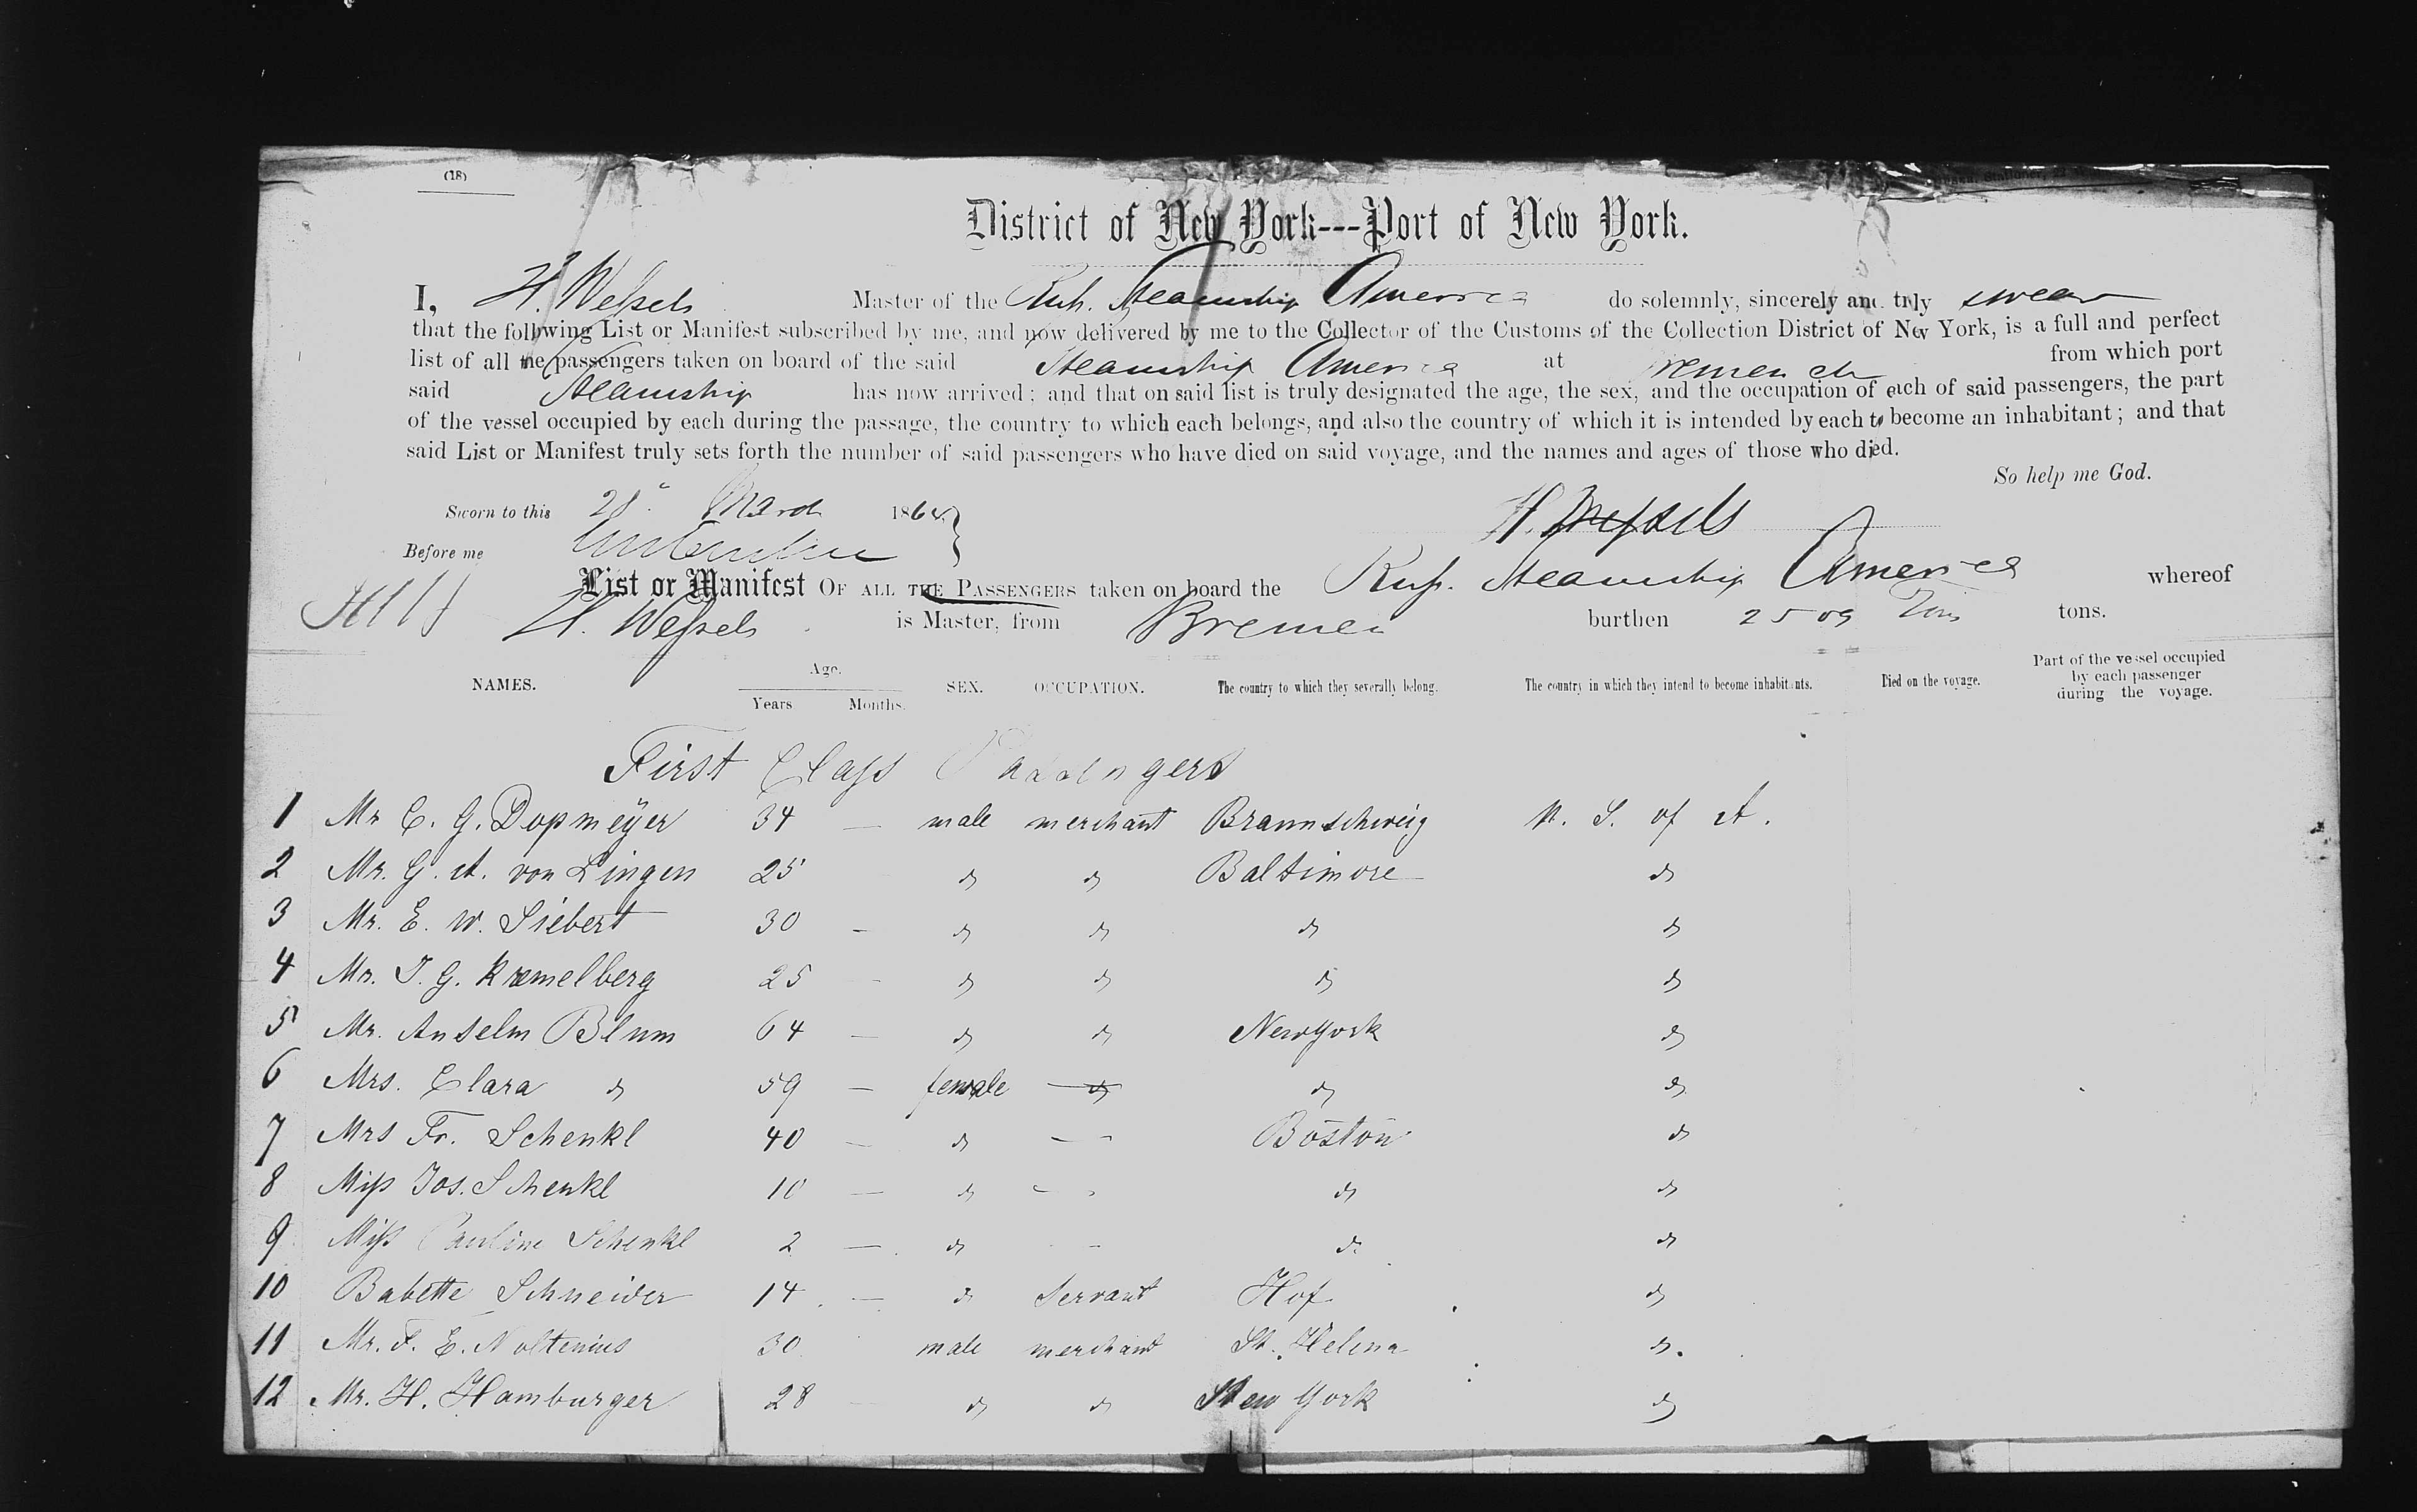 (18)
District of New York---Port of New York.
I, H. Wessels Master of the Steamship America do solemnly, sincerely and truly swear
that the following List or Manifest subscribed by me, and now delivered by me to the Collector of the Customs of the Collection District of New York, is a full and perfect
list of all the passengers taken on board of the said Steamship America at from which port
said Steamship has now arrived: and that on said list is truly designated the age, the sex, and the occupation of each of said passengers, the part
of the vessel occupied by each during the passage, the country to which each belongs, and also the country of which it is intended by each to become an inhabitant; and that
said List or Manifest truly sets forth the number of said passengers who have died on said voyage, and the names and ages of those who died.
So help me God.
Sworn to this March 186
H. Wessels
Before me
List or Manifest OF ALL THE PASSENGERS taken on board the Steamship America whereof
H. Wessels is Master, from Bremen burthen 2509 Tons tons.
NAMES. Age. Years Months. SEX. OCCUPATION. The country to which they severally belong. The country in which they intend to become inhabitants. Died on the voyage. Part of the vessel occupied by each passenger during the voyage.
First Class Passengers
1 Mr C. G. Dopmeÿer 34 — male merchant Braunschweig U. S. of A.
2 Mr. G. A. von Lingen 25 do do Baltimore do
3 Mr. E. W. Siebert 30 — do do do do
4 Mr. J. G. Kræmelberg 25 — do do do do
5 Mr. Anselm Blum 64 — do do New York do
6 Mrs. Clara do 59 — female do do do
7 Mrs Fr. Schenkl 40 — do — Boston do
8 Miss Jos. Schenkl 10 — do - do do
9 Miss Pauline Schenkl 2 — do - do do
10 Babette Schneider 14 — do Servant Hof do
11 Mr. F. E. Noltenius 30 male merchant St. Helena do.
12 Mr. H. Hamburger 28 do do New York do